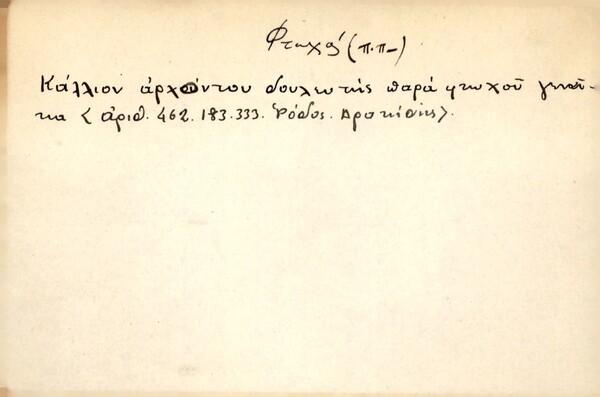 Φτωχός (π.π.-)
Κάλλιον ἀρχόντου δουλευτής παρά φτωχοῦ γυναῖ-
κα < ἀριθ. 462. 183. 333. Ρόδος. Δρακίδης>.